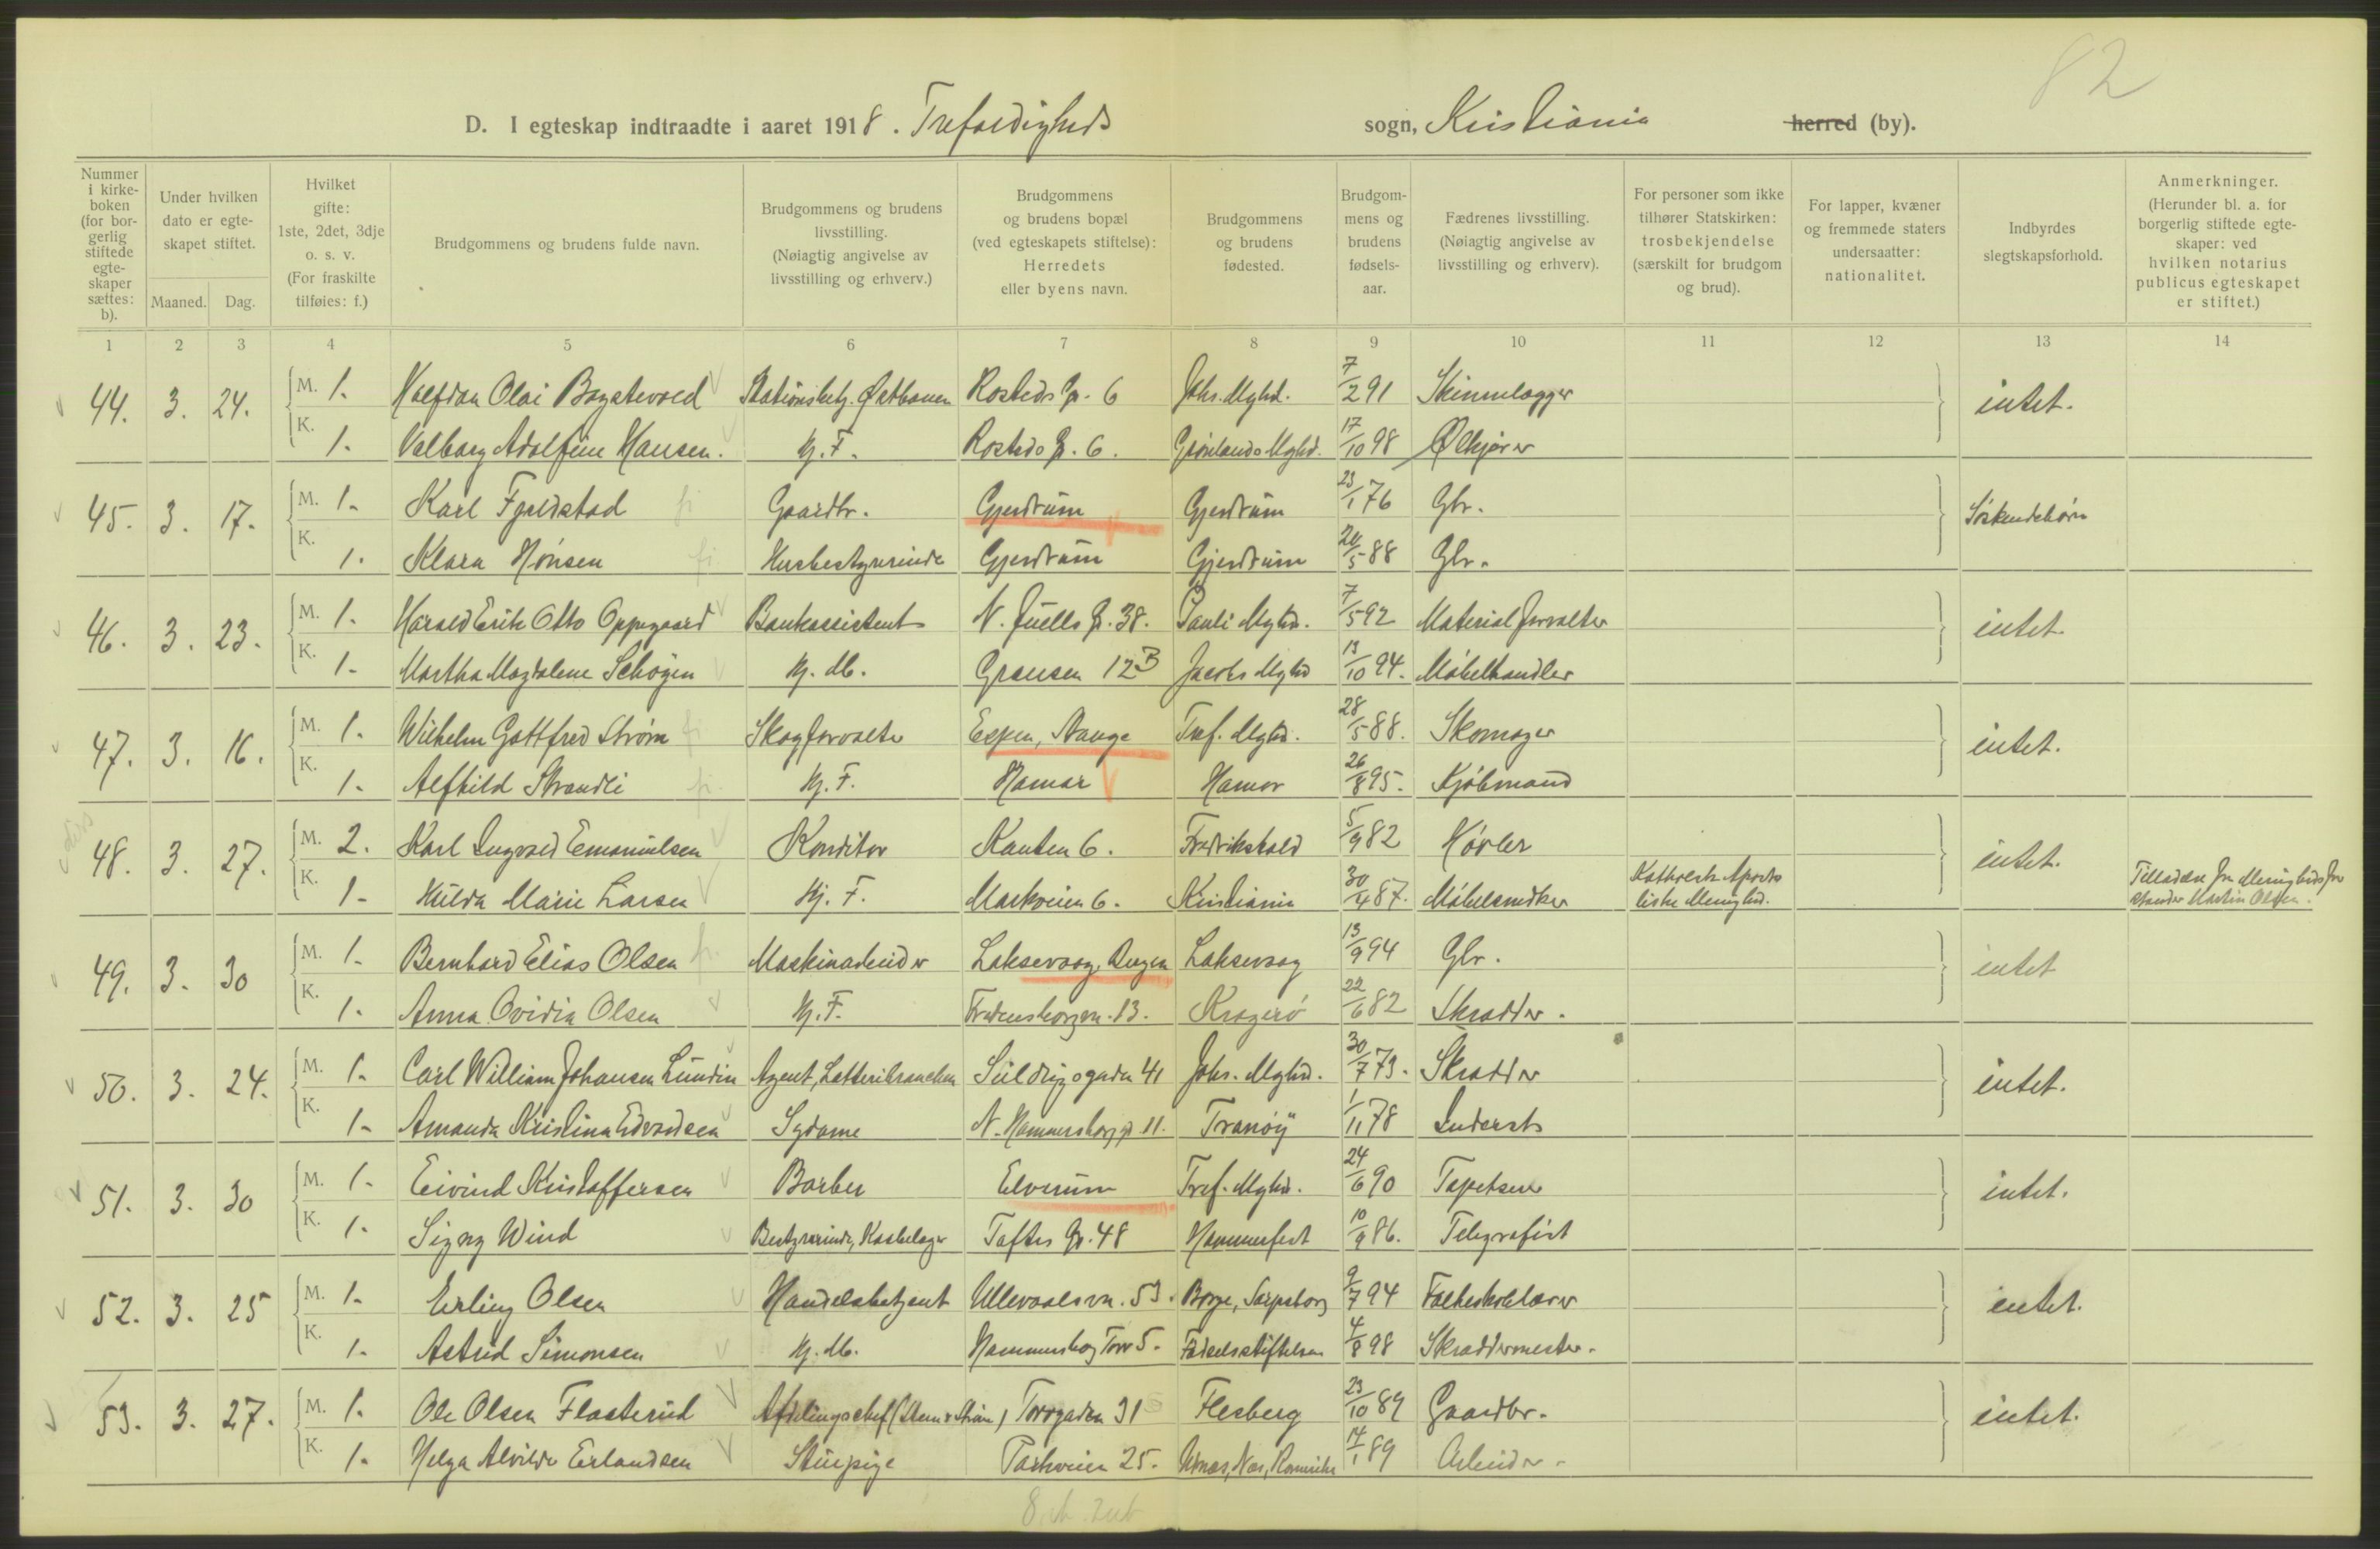 82
D. I egteskap indtraadte i aaret 1918. Trefoldigheds sogn, Kristiania herred (by).
Nummer i kirkeboken (for borgerlig stiftede egteskaper sættes: b).
Under hvilken dato er egteskapet stiftet.
Maaned. Dag.
Hvilket gifte: 1ste, 2det, 3dje o. s. v. (For fraskilte tilføies: f.)
Brudgommens og brudens fulde navn.
Brudgommens og brudens livsstilling. (Nøiagtig angivelse av livsstilling og erhverv.)
Brudgommens og brudens bopæl (ved egteskapets stiftelse): Herredets eller byens navn.
Brudgommens og brudens fødested.
Brudgommens og brudens fødselsaar.
Fædrenes livsstilling. (Nøiagtig angivelse av livsstilling og erhverv).
For personer som ikke tilhører Statskirken: trosbekjendelse (særskilt for brudgom og brud).
For lapper, kvæner og fremmede staters undersaatter: nationalitet.
Indbyrdes slegtskapsforhold.
Anmerkninger. (Herunder bl. a. for borgerlig stiftede egteskaper: ved hvilken notarius publicus egteskapet er stiftet.)
1 2 3 4 5 6 7 8 9 10 11 12 13 14
44. 3. 24. M. 1. Halfdan Olai Bogstevold Stationsbetj. Østbanen Rosteds g. 6 Johs. Mghd. 7/2 91 Skinnelægger intet.
K. 1. Valborg Adolfine Hansen. Hj. F. Rosteds g. 6. Grønlands Mghd. 17/10 98 Ølkjører
45. 3. 17. M. 1. Karl Fjeldstad Gaardbr. Gjerdrum Gjerdrum 23/1 76 Gbr. Søskendebørn
K. 1. Klara Hønsen Husbestyrerinde Gjerdrum Gjerdrum 20/5 88 Gbr.
46. 3. 23. M. 1. Harald Erik Otto Oppegaard Bankassistent N. Juells g. 38. Pauli Mghd. 7/5 92 Materialforvalter intet.
K. 1. Martha Magdalene Schøyen Hj. M. Grensen 12B Jacobs Mghd 13/10 94. Møbelhandler
47. 3. 16. M. 1. Wilhelm Gottfred Strøm Skogforvalter Espen, Stange Tref. Mghd. 28/5 88. Skomager intet.
K. 1. Alfhild Strandli Hj. F. Hamar Hamar 26/8 95. Kjøbmand
48. 3. 27. M. 2. Karl Ingvald Emanuelsen Konditor Kanten 6. Fredrikshald 5/9 82 Høvler intet.
K. 1. Hulda Marie Larsen Hj. F. Markveien 6. Kristiania 30/4 87. Møbelsnedker Katholsk Apostoliske Menighed. Tilladelse fra Menighedsforstander Martin Olsen.
49. 3. 30 M. 1. Bernhard Elias Olsen Maskinarbeider Laksevaag, Bergen Laksevaag 13/9 94 Gbr. intet
K. 1. Anna Ovidia Olsen Hj. F. Fredensborgvn. 13. Kragerø 22/6 82 Skrædder.
50. 3. 24. M. 1. Carl William Johansen Lundin Agent, Lotteribranchen Seildugsgaden 41 Johs. Mghd. 30/7 73. Skrædder intet.
K. 1. Amanda Kristina Edvardsen Sydame N. Hammersborg g. 11. Tranøy 1/11 78 Inderst
51. 3. 30 M. 1. Eivind Kristoffersen Barber Elverum Tref. Mghd. 24/6 90 Tapetserer intet.
K. 1. Signy Wind Bestyrerinde, Kaabelager Toftes g. 48 Hammerfest 10/9 86. Telegrafist
52. 3. 25 M. 1. Erling Olsen Handelsbetjent Ullevaalsvn. 53. Borge, Sarpsborg 9/7 94 Folkeskolelærer intet.
K. 1. Astrid Simonsen Hj. M. Hammersborg Torv 5. Fødselsstiftelsen 4/8 98 Skræddermester.
53. 3. 27. M. 1. Ole Olsen Flaaterud Afdelingschef (Steen & Strøm) Torvgaden 31 Flesberg 23/10 89 Gaardbr. intet.
K. 1. Helga Alvilde Erlandsen Stuepige Parkveien 25. Nes, Romerike 14/1 89 Arbeider.